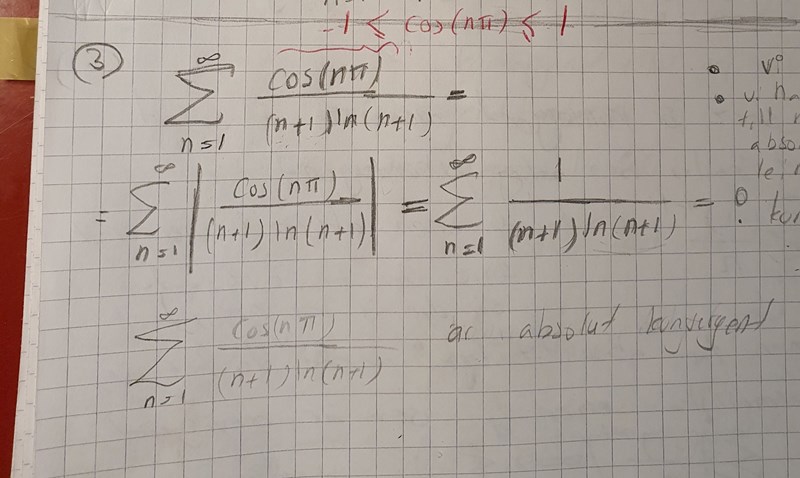 -1 ≤ cos(nπ) ≤ 1
③ ∞ ∑ n=1 cos(nπ) / (n+1) ln(n+1) =
= ∞ ∑ n=1 | cos(nπ) / (n+1) ln(n+1) | = ∞ ∑ n=1 1 / (n+1) ln(n+1) = ?
∞ ∑ n=1 cos(nπ) / (n+1) ln(n+1) är absolut konvergent